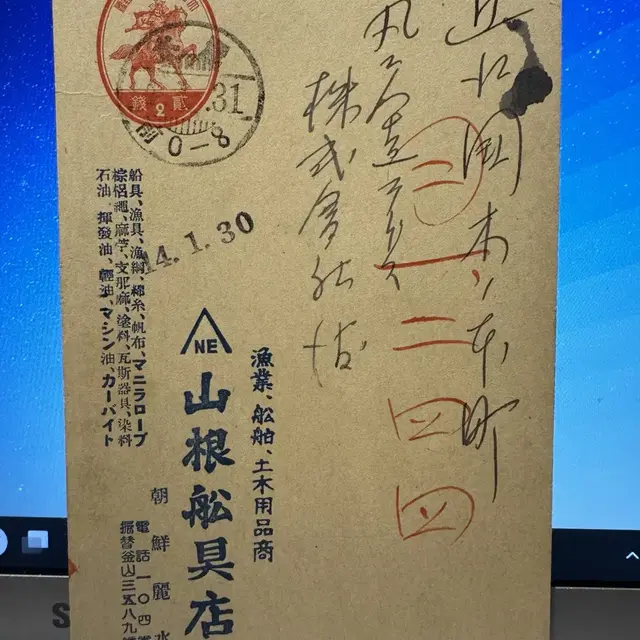 近江國木ノ本町
株式會社
二一二四四
貳錢
2
.31
前0-8
14.1.30
漁業、船舶、土木用品商
NE
山根船具店
朝鮮麗水
電話一〇四
振替釜山三五八九
船具、漁具、漁網、綿糸、帆布、マニラロープ
棕梠繩、麻苧、支那麻、塗料、瓦斯器具、染料
石油、揮發油、輕油、マシン油、カーバイト